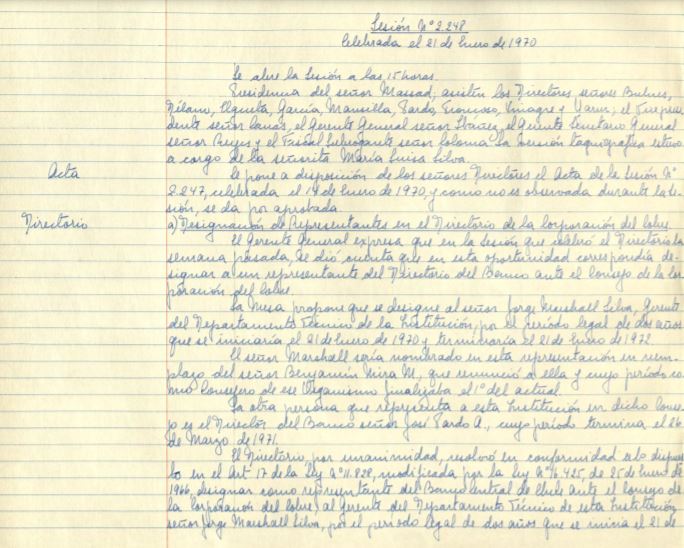 Sesión N° 2.248
Celebrada el 21 de Enero de 1970
Se abre la Sesión a las 15 horas.
Presidencia del señor Massad; asisten los Directores señores Bulnes,
Délano, Elgueta, García, Mansilla, Pardo, Troncoso, Vinagre y Varas; el Vicepresi
dente señor Cauas, el Gerente General señor Ibáñez, el Gerente Secretario General
señor Reyes y el Fiscal Subrogante señor Coloma. La versión taquigráfica estuvo
a cargo de la señorita María Luisa Silva.
Acta
Se pone a disposición de los señores Directores el Acta de la Sesión N°
2.247, celebrada el 14 de Enero de 1970, y como no es observada durante la Se-
sión, se da por aprobada.
Directorio
a) Designación de Representantes en el Directorio de la Corporación del Cobre.
El Gerente General expresa que en la sesión que celebró el Directorio la
semana pasada, se dió cuenta que en esta oportunidad correspondía de-
signar a un representante del Directorio del Banco ante el Consejo de la Cor-
poración del Cobre.
La Mesa propone que se designe al señor Jorge Marshall Silva, Gerente
del Departamento Técnico de la Institución, por el período legal de dos años
que se iniciaría el 21 de Enero de 1970 y terminaría el 21 de Enero de 1972.
El señor Marshall sería nombrado en esta representación en reem-
plazo del señor Benjamín Mira M., que renunció a ella y cuyo período co-
mo Consejero de ese Organismo finalizaba el 1° del actual.
La otra persona que representa a esta Institución en dicho Conse-
jo es el Director del Banco señor José Pardo A., cuyo período termina el 26
de Marzo de 1971.
El Directorio, por unanimidad, resolvió en conformidad a lo dispues
to en el Art. 17 de la Ley N° 11.828, modificada por la Ley N° 16.425, de 25 de Enero de
1966, designar como representante del Banco Central de Chile ante el Consejo de
la Corporación del Cobre, al Gerente del Departamento Técnico de esta Institución
señor Jorge Marshall Silva, por el período legal de dos años que se inicia el 21 de